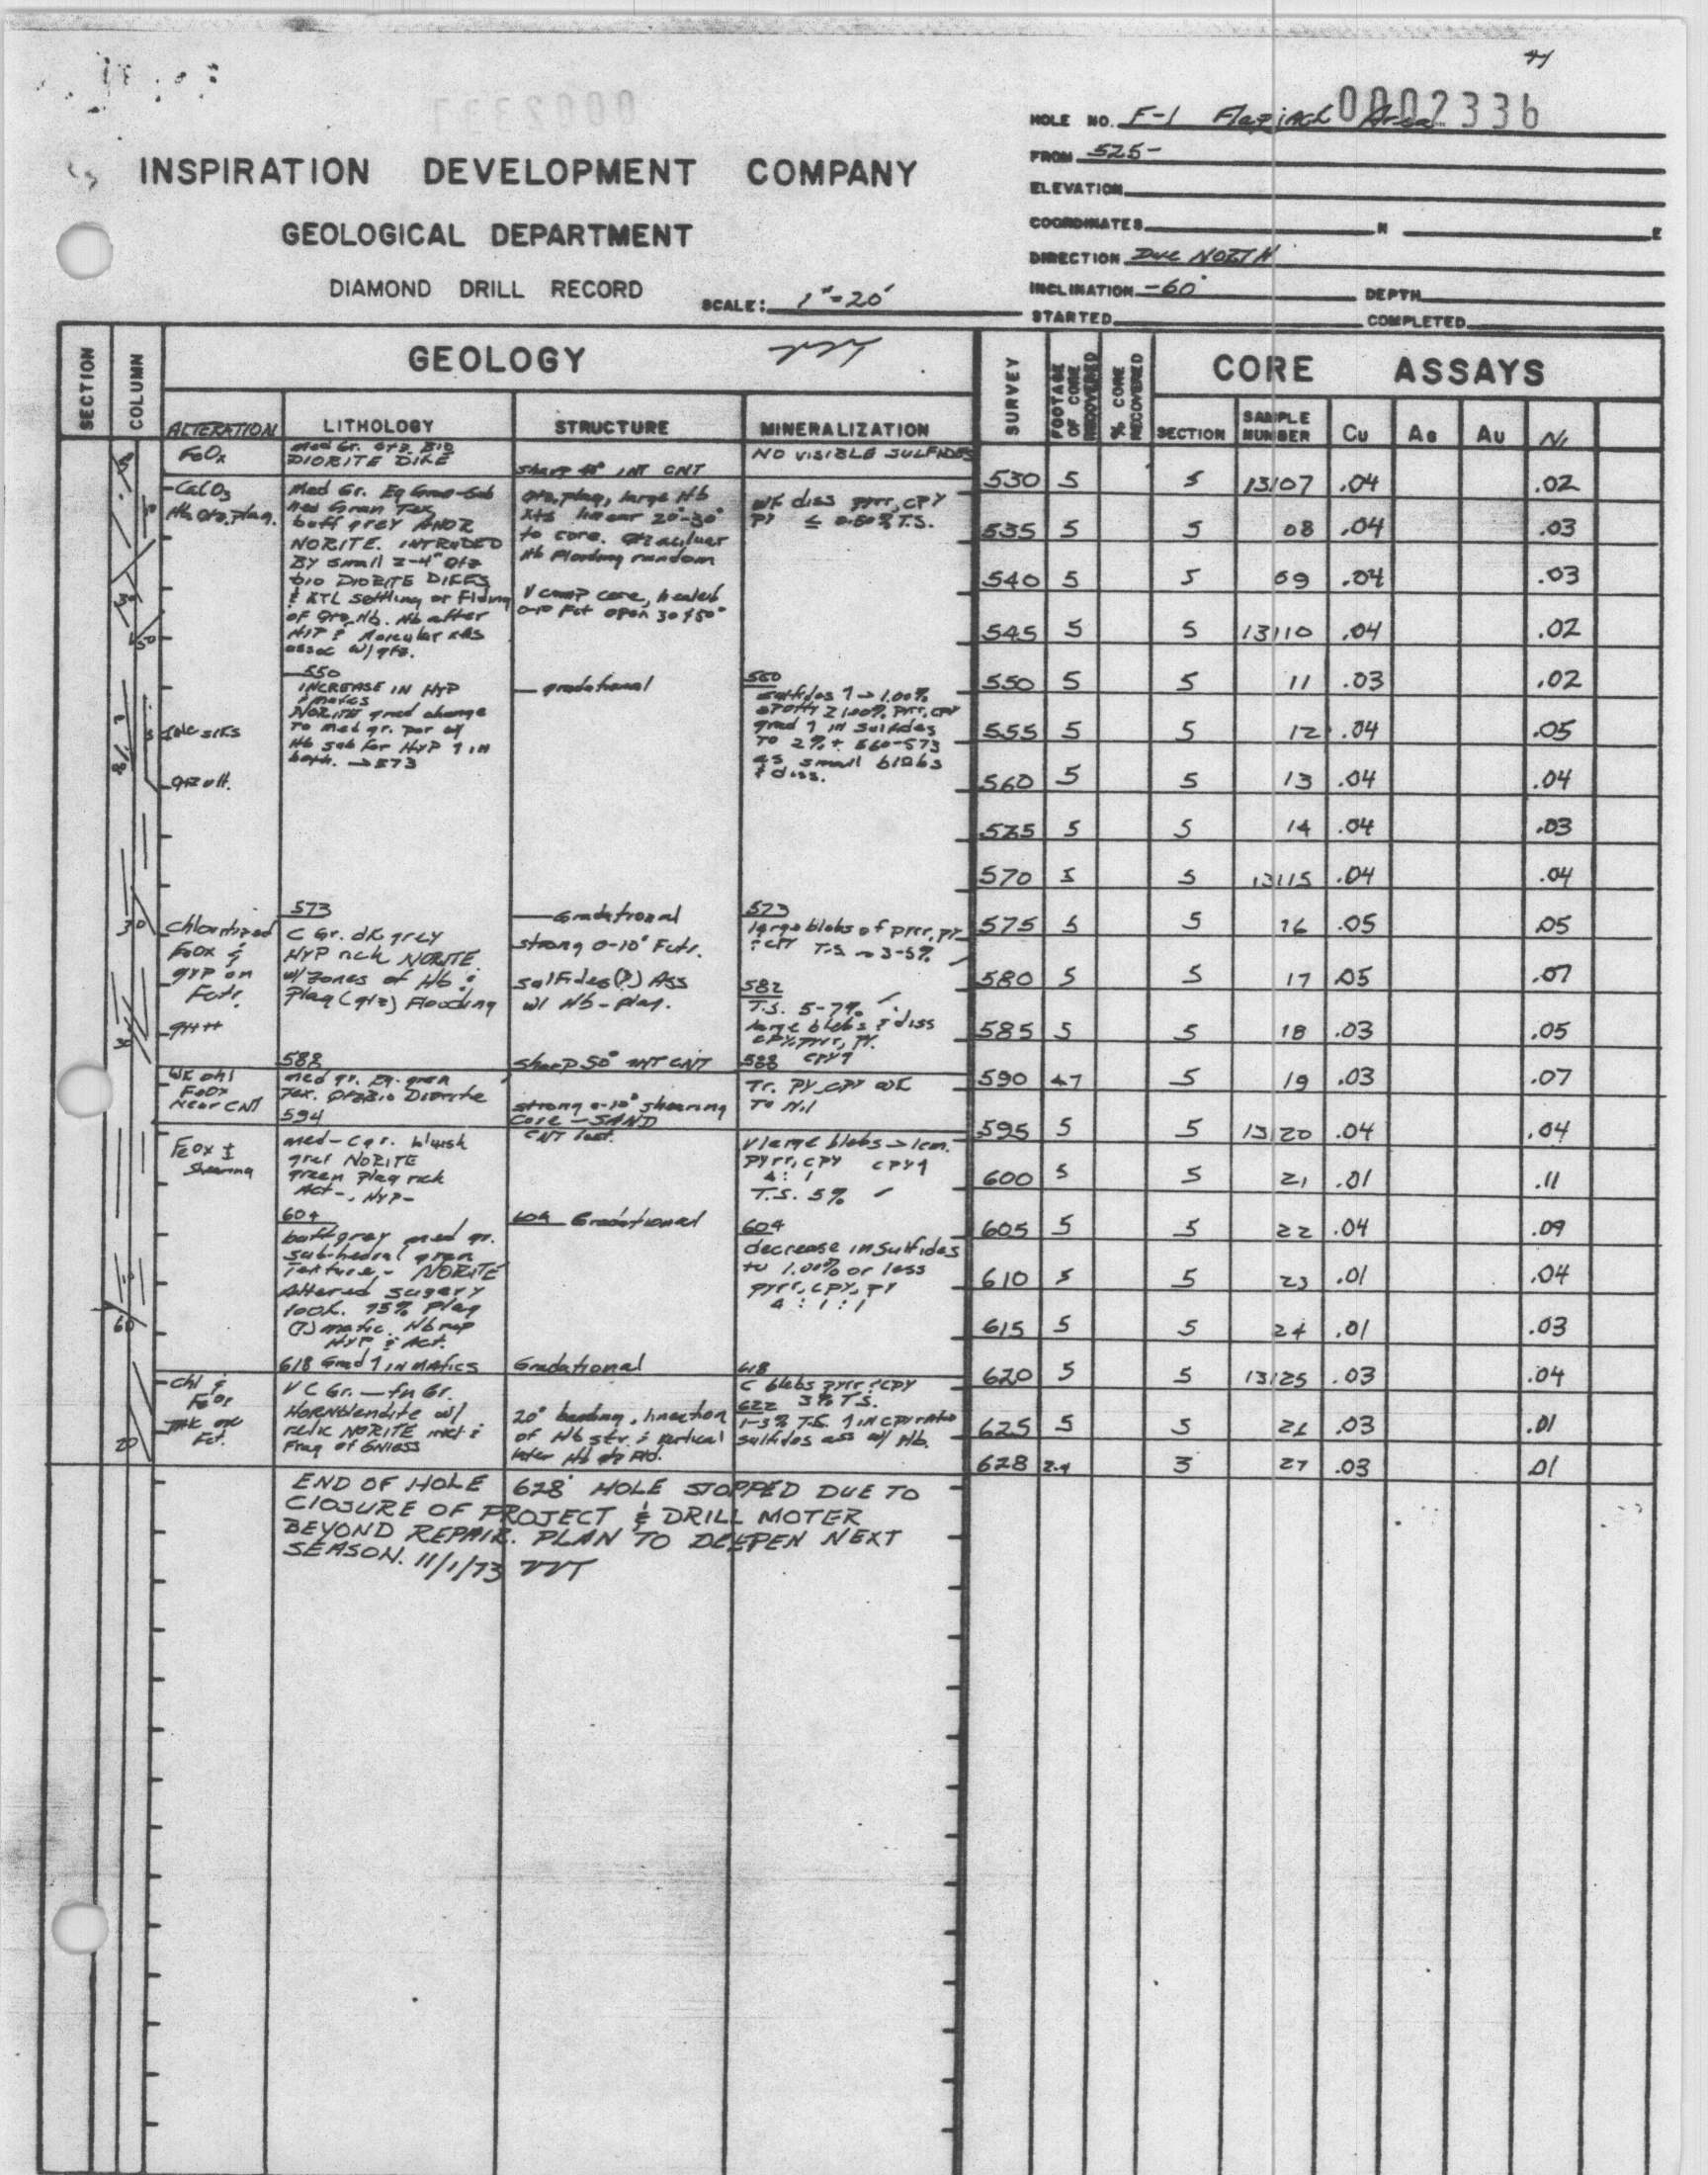 0002336
HOLE NO. F-1 Area
FROM 525-
INSPIRATION DEVELOPMENT COMPANY
ELEVATION
GEOLOGICAL DEPARTMENT
COORDINATES N E
DIRECTION Due NORTH
DIAMOND DRILL RECORD
SCALE: 1"=20'
INCLINATION -60° DEPTH
STARTED COMPLETED
SECTION
COLUMN
GEOLOGY
ALTERATION
LITHOLOGY
STRUCTURE
MINERALIZATION
SURVEY
FOOTAGE OF CORE RECOVERED
% CORE RECOVERED
CORE ASSAYS
SECTION
SAMPLE NUMBER
Cu
Au
Ni
FeOx
Med Gr. Qtz BIO
DIORITE DIKE
INT CNT
NO VISIBLE SULFIDES
Med Gr.
buff grey ANOR
NORITE. INTRUDED
BY small 2-4" Qtz
bio DIORITE DIKES
assoc w/ qtz.
Qtz, plag, large Hb
linear 20°-30°
to core.
Hb Flooding random
V comp core, healed
open 30 & 50°
WK diss pyrr, cpy
py ≤ 0.50% T.S.
550
INCREASE IN HYP
NORITE grad change
to med gr.
→573
gradational
550
sulfides ↑→1.00%
TO 2%+ 560-573
as small blebs
& diss.
573
C Gr. dk grey
HYP rich NORITE
w/ zones of Hb &
Plag (qtz) Flooding
Chloritized
FeOx &
gyp on
Fctr.
Gradational
strong 0-10° Fctr.
sulfides(?) Ass
w/ Hb-plag.
573
large blobs of pyrr, py
& cpy T.S. ~3-5%
582
T.S. 5-7%
large blebs & diss
cpy, pyrr, py.
588 cpy↑
588
med gr. Eq. gran
Tex. Qtz Bio Diorite
594
FeOx
Near CNT
sharp 50° INT CNT
strong 0-10° shearing
core - SAND
CNT lost.
Tr. py, cpy WK
To Nil
FeOx ±
Shearing
med-C gr. bluish
grey NORITE
green plag rich
Act-, HYP-
V large blebs >1cm.
pyrr, cpy cpy↑
4:1
T.S. 5%
604
buff grey med gr.
subhedral gran
Texture - NORITE
Altered sugary
look. 75% plag
HYP & Act.
604 Gradational
604
decrease in sulfides
to 1.00% or less
pyrr, cpy, py
4:1:1
618 Grad ↑ IN MAFICS
Gradational
618
C blebs pyrr & cpy
622 3% T.S.
1-3% T.S. ↑ IN cpy ratio
sulfides ass w/ Hb.
Chl &
FeOx
V C Gr. - fn Gr.
HORNblendite w/
relic NORITE
Frag of GNIESS
20° banding, lineation
530 5 5 13107 .04 .02
535 5 5 08 .04 .03
540 5 5 09 .04 .03
545 5 5 13110 .04 .02
550 5 5 11 .03 .02
555 5 5 12 .04 .05
560 5 5 13 .04 .04
565 5 5 14 .04 .03
570 5 5 13115 .04 .04
575 5 5 16 .05 .05
580 5 5 17 .05 .07
585 5 5 18 .03 .05
590 4.7 5 19 .03 .07
595 5 5 13120 .04 .04
600 5 5 21 .01 .11
605 5 5 22 .04 .09
610 5 5 23 .01 .04
615 5 5 24 .01 .03
620 5 5 13125 .03 .04
625 5 5 26 .03 .01
628 2.9 3 27 .03 .01
END OF HOLE 628' HOLE STOPPED DUE TO
CLOSURE OF PROJECT & DRILL MOTER
BEYOND REPAIR. PLAN TO DEEPEN NEXT
SEASON. 11/1/73